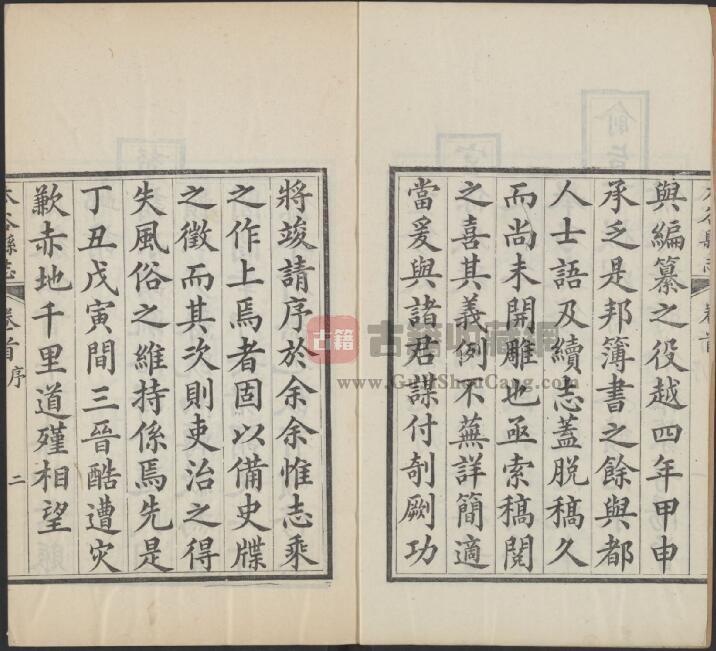 與編纂之役越四年甲申
承乏是邦簿書之餘與都
人士語及續志蓋脫稿久
而尚未開雕也亟索稿閱
之喜其義例不蕪詳簡適
當爰與諸君謀付剞劂功
將竣請序於余余惟志乘
之作上焉者固以備史牒
之徵而其次則吏治之得
失風俗之維持係焉先是
丁丑戊寅間三晉酷遭灾
歉赤地千里道殣相望
太谷縣志 卷首 序 二
古籍收藏網
www.GuJiShouCang.com